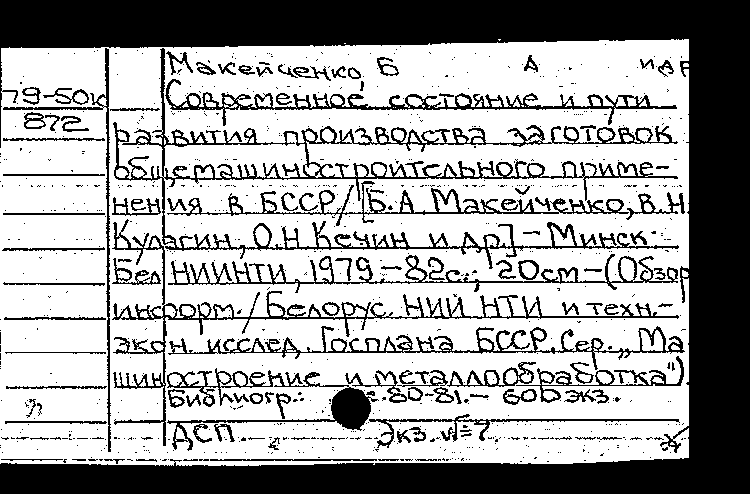 Макейченко Б А и др
79-50к Современное состояние и пути
872 развития производства заготовок
общемашиностроительного приме-
нения в БССР/[Б.А. Макейченко, В.Н.
Кулагин, О.Н. Кечин и др.].-Минск:
БелНИИНТИ, 1979.-82с.; 20см-(Обзор
информ./Белорус. НИИ НТИ и техн.-
экон. исслед. Госплана БССР. Сер. „Ма
шиностроение и металлообработка").
Библиогр.: с.80-81.- 600 экз.
ДСП. Экз. №7.